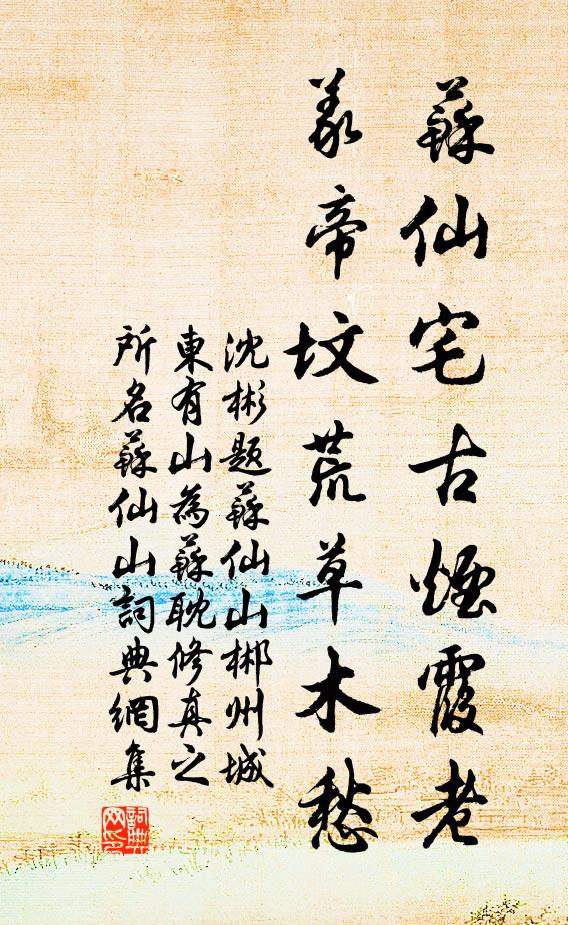 蘇仙宅古煙霞老
義帝坟荒草木愁
沈彬题蘇仙山郴州城
東有山為蘇耽修真之
所名蘇仙山詞典網集
詞典网印